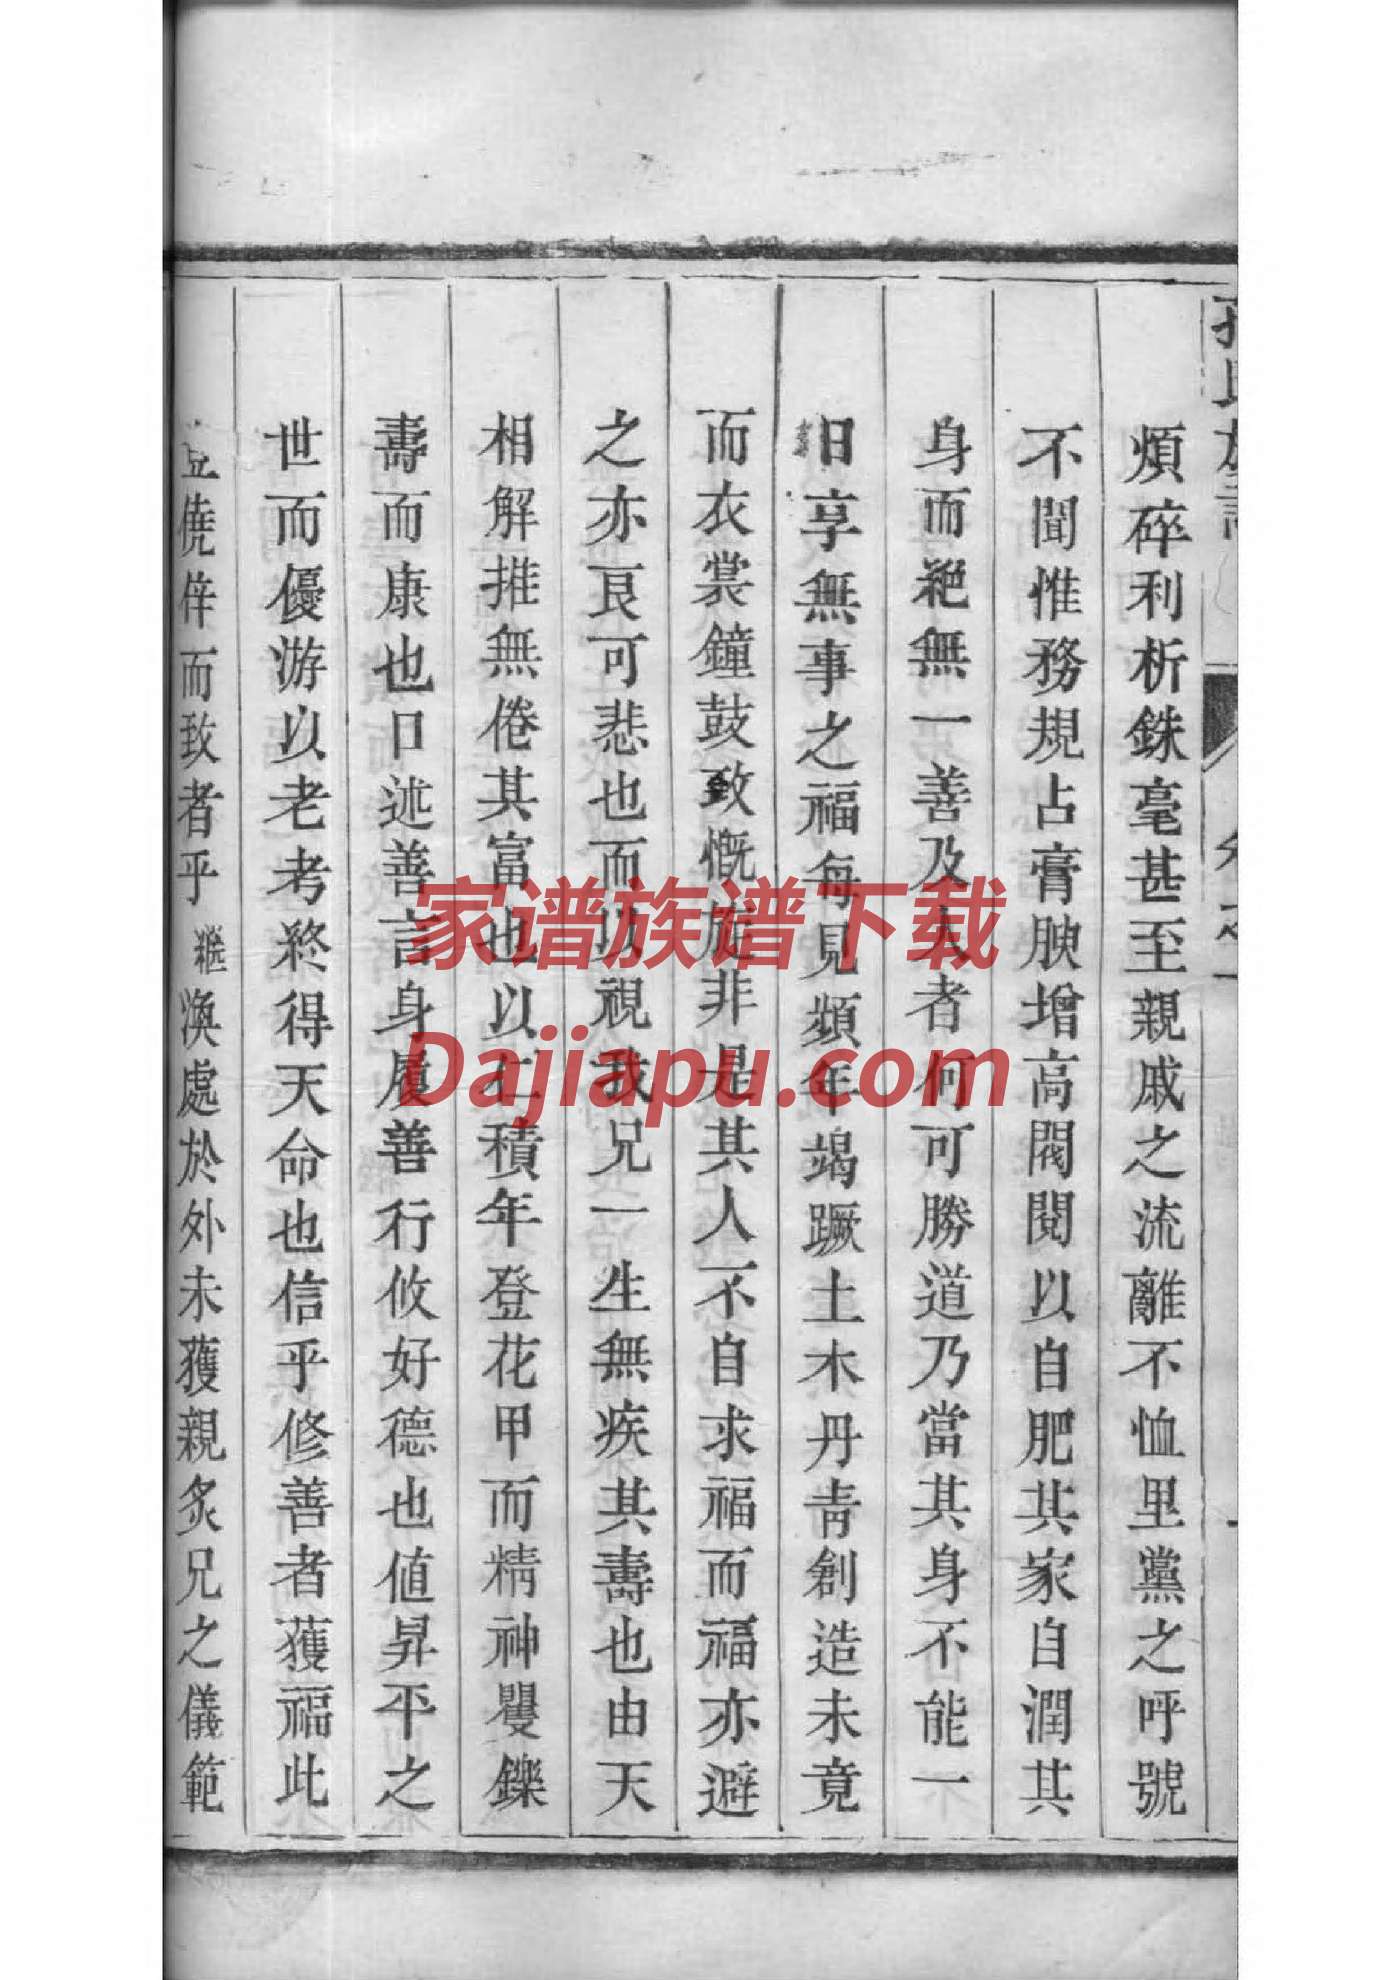 煩碎利析銖毫甚至親戚之流離不恤里黨之呼號
不聞惟務規占膏腴增高閥閱以自肥其家自潤其
身而絕無一善及人者何可勝道乃當其身不能一
日享無事之福每見頻年竭蹶土木丹青創造未竟
而衣裳鐘鼓致慨庭非是其人不自求福而福亦避
之亦良可悲也而以視我兄一生無疾其壽也由天
相解推無倦其富也以仁積年登花甲而精神矍鑠
壽而康也口述善言身履善行攸好德也值昇平之
世而優游以老考終得天命也信乎修善者獲福此
豈僥倖而致者乎繼渙處於外未獲親炙兄之儀範
家谱族谱下载
Dajiapu.com